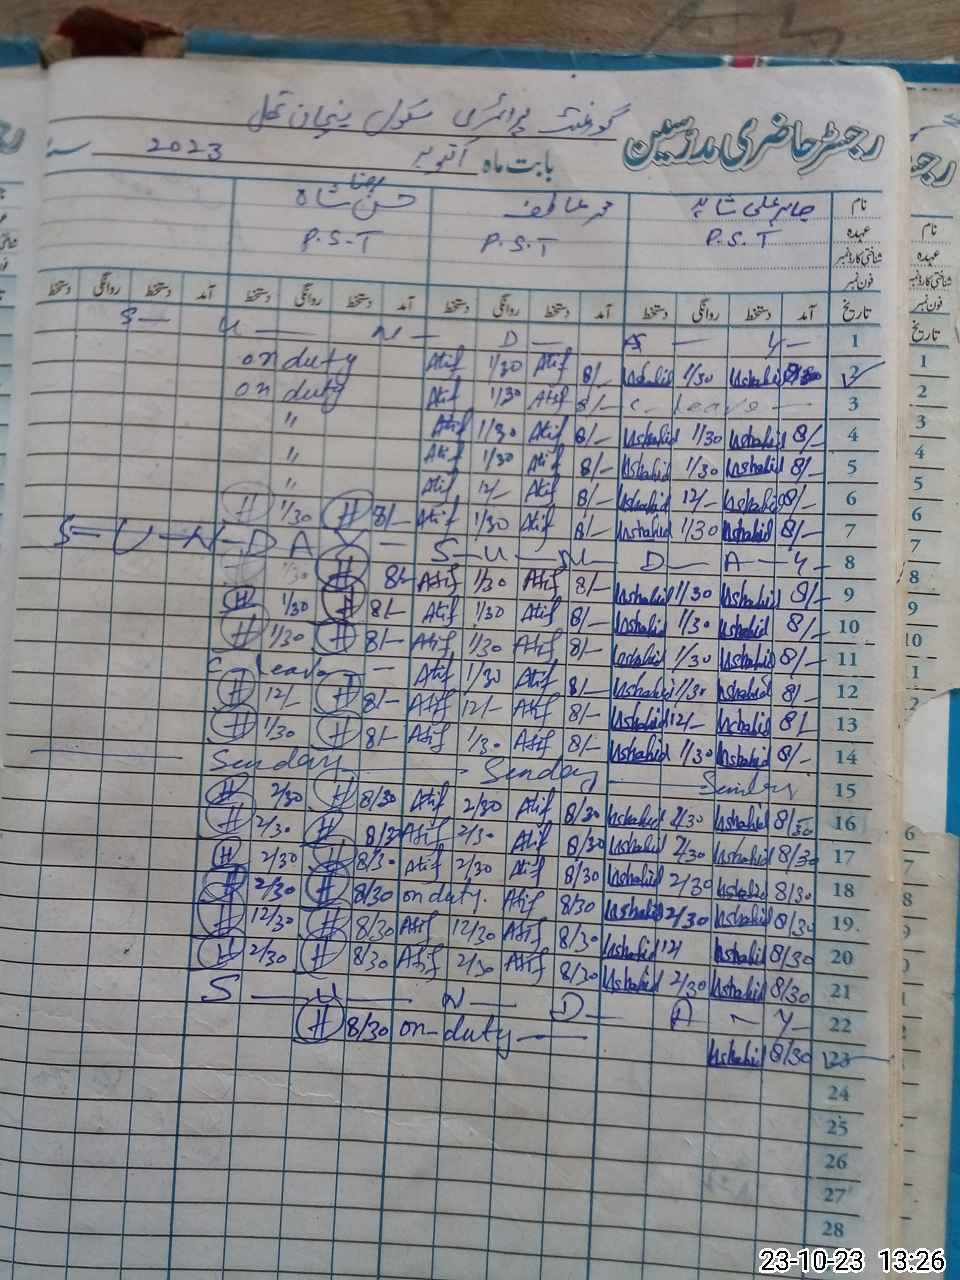 رجسٹر حاضری مدرسین
گورنمنٹ پرائمری سکول
بابت ماہ اکتوبر 2023 سنہ
نام صابر علی شاہد محمد عاطف حسن رضا شاہ
عہدہ P.S.T P.S.T P.S.T
شناختی کارڈ نمبر
فون نمبر
تاریخ آمد دستخط روانگی دستخط آمد دستخط روانگی دستخط آمد دستخط روانگی دستخط آمد دستخط روانگی دستخط
S — U — N — D — A — Y — 1
on duty Atif 1/30 Atif 8/- Ushahid 1/30 Ushahid 2
on duty Atif 1/30 Atif 8/- C- leave — 3
" Atif 1/30 Atif 8/- Ushahid 1/30 Ushahid 8/- 4
" Atif 1/30 Atif 8/- Ushahid 1/30 Ushahid 8/- 5
" Atif 12/- Atif 8/- Ushahid 12/- Ushahid 8/- 6
H 1/30 H 8/- Atif 1/30 Atif 8/- Ushahid 1/30 Ushahid 8/- 7
S — U — N — D A Y — S — U — N — D — A — Y — 8
H 1/30 H 8/- Atif 1/30 Atif 8/- Ushahid 1/30 Ushahid 8/- 9
H 1/30 H 8/- Atif 1/30 Atif 8/- Ushahid 1/30 Ushahid 8/- 10
H 1/30 H 8/- Atif 1/30 Atif 8/- Ushahid 1/30 Ushahid 8/- 11
C leave — Atif 1/30 Atif 8/- Ushahid 1/30 Ushahid 8/- 12
H 12/- H 8/- Atif 12/- Atif 8/- Ushahid 12/- Ushahid 8/- 13
H 1/30 H 8/- Atif 1/30 Atif 8/- Ushahid 1/30 Ushahid 8/- 14
Sunday — Sunday — Sunday 15
H 2/30 H 8/30 Atif 2/30 Atif 8/30 Ushahid 2/30 Ushahid 8/30 16
H 2/30 H 8/30 Atif 2/30 Atif 8/30 Ushahid 2/30 Ushahid 8/30 17
H 2/30 H 8/30 Atif 2/30 Atif 8/30 Ushahid 2/30 Ushahid 8/30 18
H 2/30 H 8/30 on duty. Atif 8/30 Ushahid 2/30 Ushahid 8/30 19
H 12/30 H 8/30 Atif 12/30 Atif 8/30 Ushahid 12/ Ushahid 8/30 20
H 2/30 H 8/30 Atif 2/30 Atif 8/30 Ushahid 2/30 Ushahid 8/30 21
S — U — N — D — A — Y — 22
H 8/30 on-duty — Ushahid 8/30 23
24
25
26
27
28
23-10-23 13:26